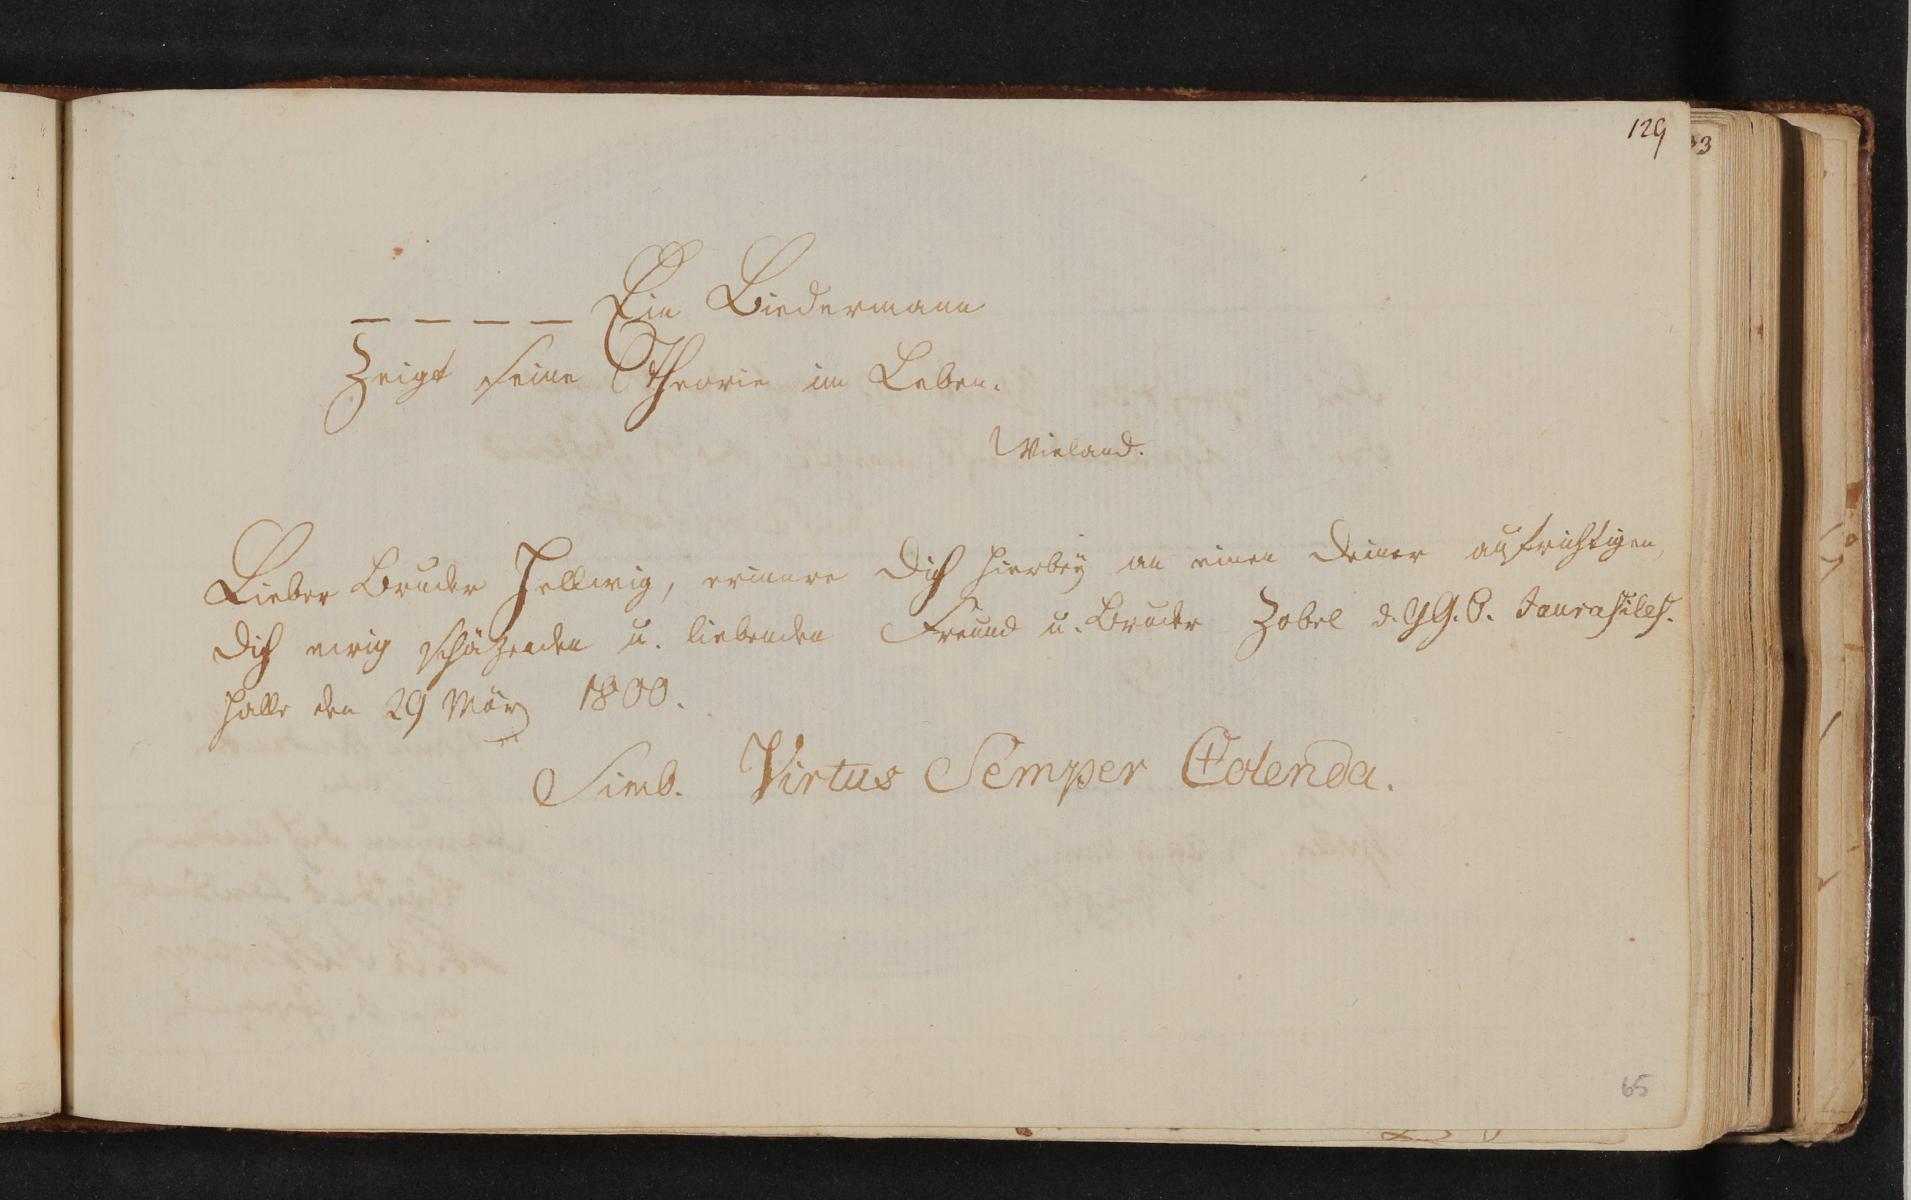 129
33
_ _ _ _ Ein Biedermann
Zeigt seine Theorie im Leben.
Wieland.
Lieber Bruder Hellwig, erinnre Dich hierbey an einen Deiner aufrichtigen,
Dich ewig schäzenden u. liebenden Freund u. Bruder Zobel d. G. G. B. Jaurasiles.
Halle den 29 März 1800.
Simb. Virtus Semper Colenda.
65